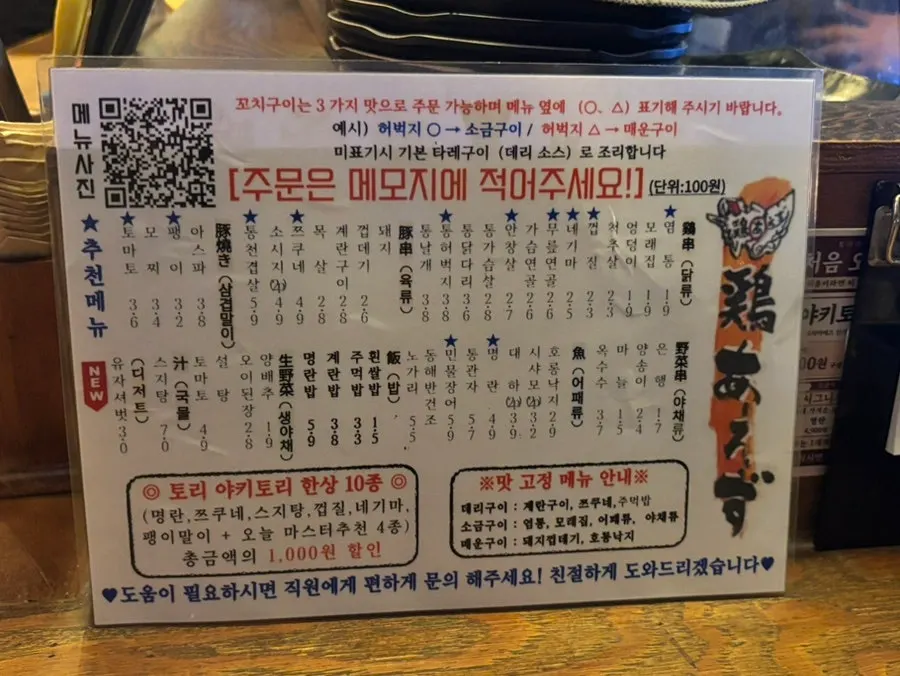 메뉴사진
꼬치구이는 3 가지 맛으로 주문 가능하며 메뉴 옆에 (○, △) 표기해 주시기 바랍니다.
예시) 허벅지 ○ → 소금구이 / 허벅지 △ → 매운구이
미표기시 기본 타레구이 (데리 소스) 로 조리합니다
[주문은 메모지에 적어주세요!] (단위:100원)
鶏 あーろず
鶏串 (닭류)
★염통 1.9
모래집 1.9
엉덩이 1.9
척추살 2.3
★껍질 2.3
★네기마 2.5
★무릎연골 2.8
가슴연골 2.7
★안창살 2.6
통가슴살 2.8
통닭다리 3.6
★통허벅지 3.8
통날개 3.8
豚串 (육류)
돼지
껍데기 2.6
계란구이 2.8
목살 2.8
★쯔쿠네 4.9
소시지(2p) 4.9
★통천겹살 5.9
豚焼き (삼겹말이)
아스파 3.8
★팽이 3.2
모찌 3.4
★토마토 3.6
★추천메뉴
野菜串 (야채류)
은행 1.7
양송이 2.4
마늘 1.5
옥수수 3.7
魚 (어패류)
호롱낙지 2.9
시샤모(2p) 3.2
대하(2p) 3.9
★명란 4.9
통관자 5.7
★민물장어 5.9
동해반건조
노가리 5.5
飯 (밥)
흰쌀밥 1.5
주먹밥 3.3
계란밥 3.8
명란밥 5.9
生野菜 (생야채)
양배추 1.9
오이된장 2.8
설탕
토마토 4.9
汁 (국물)
스지탕 7.0
(디저트)
유자셔벗 3.0
NEW
◎ 토리 야키토리 한상 10종 ◎
(명란,쯔쿠네,스지탕,껍질,네기마,
팽이말이 + 오늘 마스터추천 4종)
총금액의 1,000원 할인
※맛 고정 메뉴 안내※
데리구이 : 계란구이, 쯔쿠네,주먹밥
소금구이 : 염통, 모래집, 어패류, 야채류
매운구이 : 돼지껍데기, 호롱낙지
♥도움이 필요하시면 직원에게 편하게 문의 해주세요! 친절하게 도와드리겠습니다♥
처음 오
야키토